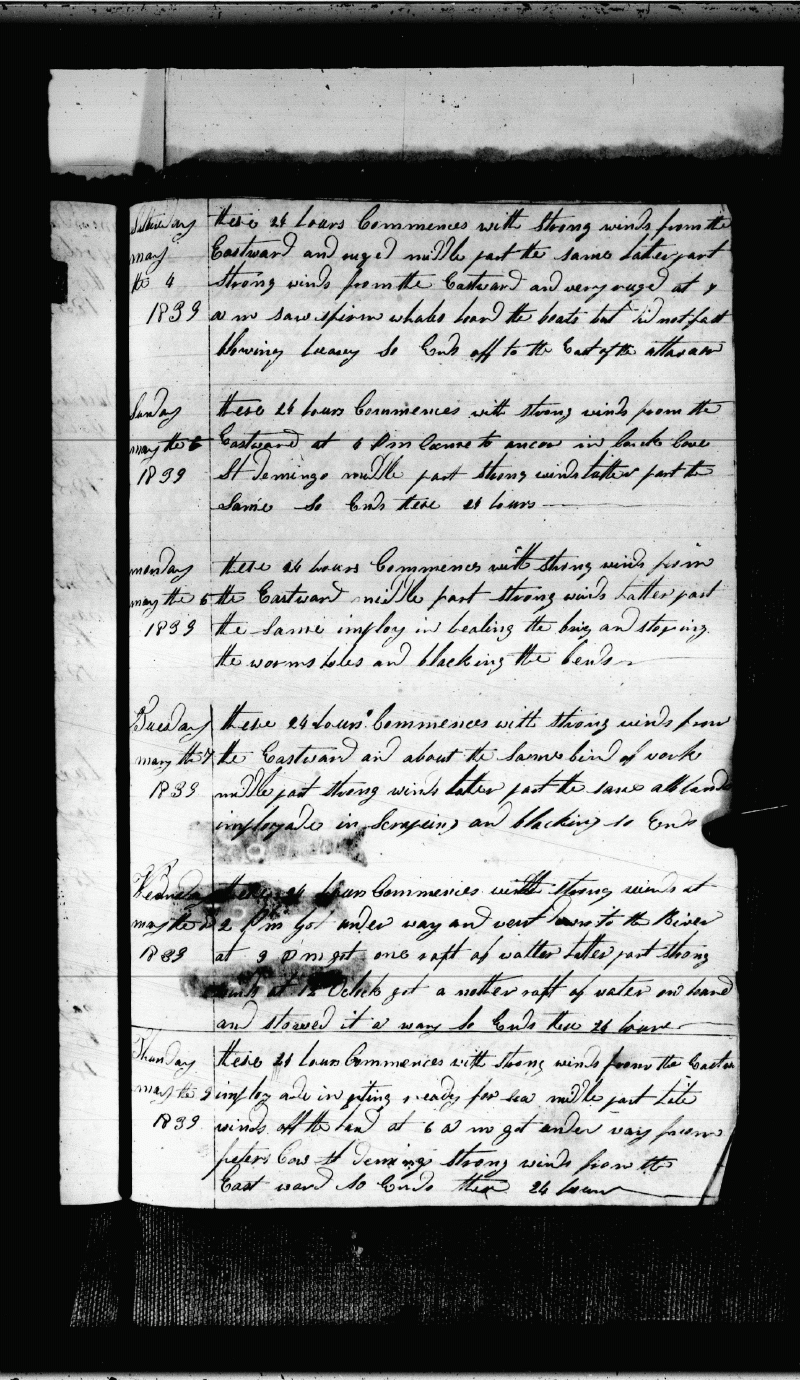 Saturday these 24 hours Commences with strong winds from the
may Eastward and ruged middle part the same latter part
the 4 strong winds from the Eastward and very ruged at
1839 a m saw spirm whales lowrd the boats but did not fast
blowing heavy So Ends off to the East of the
Sunday these 24 hours Commences with strong winds from the
may the 5 Eastward at 4 P m Came to ancor in Cove
1839 St domingo middle part strong winds latter part the
Same So Ends these 24 hours
monday these 24 hours Commences with strong winds from
may the 6 the Eastward middle part strong winds latter part
1839 the Same imploy in healing the brig and stoping
the worms holes and blacking the bends
Tuesday these 24 hours Commences with strong winds from
may the 7 the Eastward and about the Same kind of work
1839 middle part strong winds latter part the same all hands
imployade in Scrapeing and blacking So Ends
Wednsday these 24 hours Commencies with strong winds at
may the 8 2 P m Got under way and went down to the River
1839 at 9 P m got one raft of watter latter part strong
winds at 12 Oclock got a nother raft of water on board
and stowed it a way So Ends these 24 hours
Thursday these 24 hours Commences with strong winds from the Eastw
may the 9 imployade in geting ready for sea middle part lite
1839 winds off the land at 6 a m got under way from
peters Cove St doming strong winds from the
East ward So Ends these 24 hours